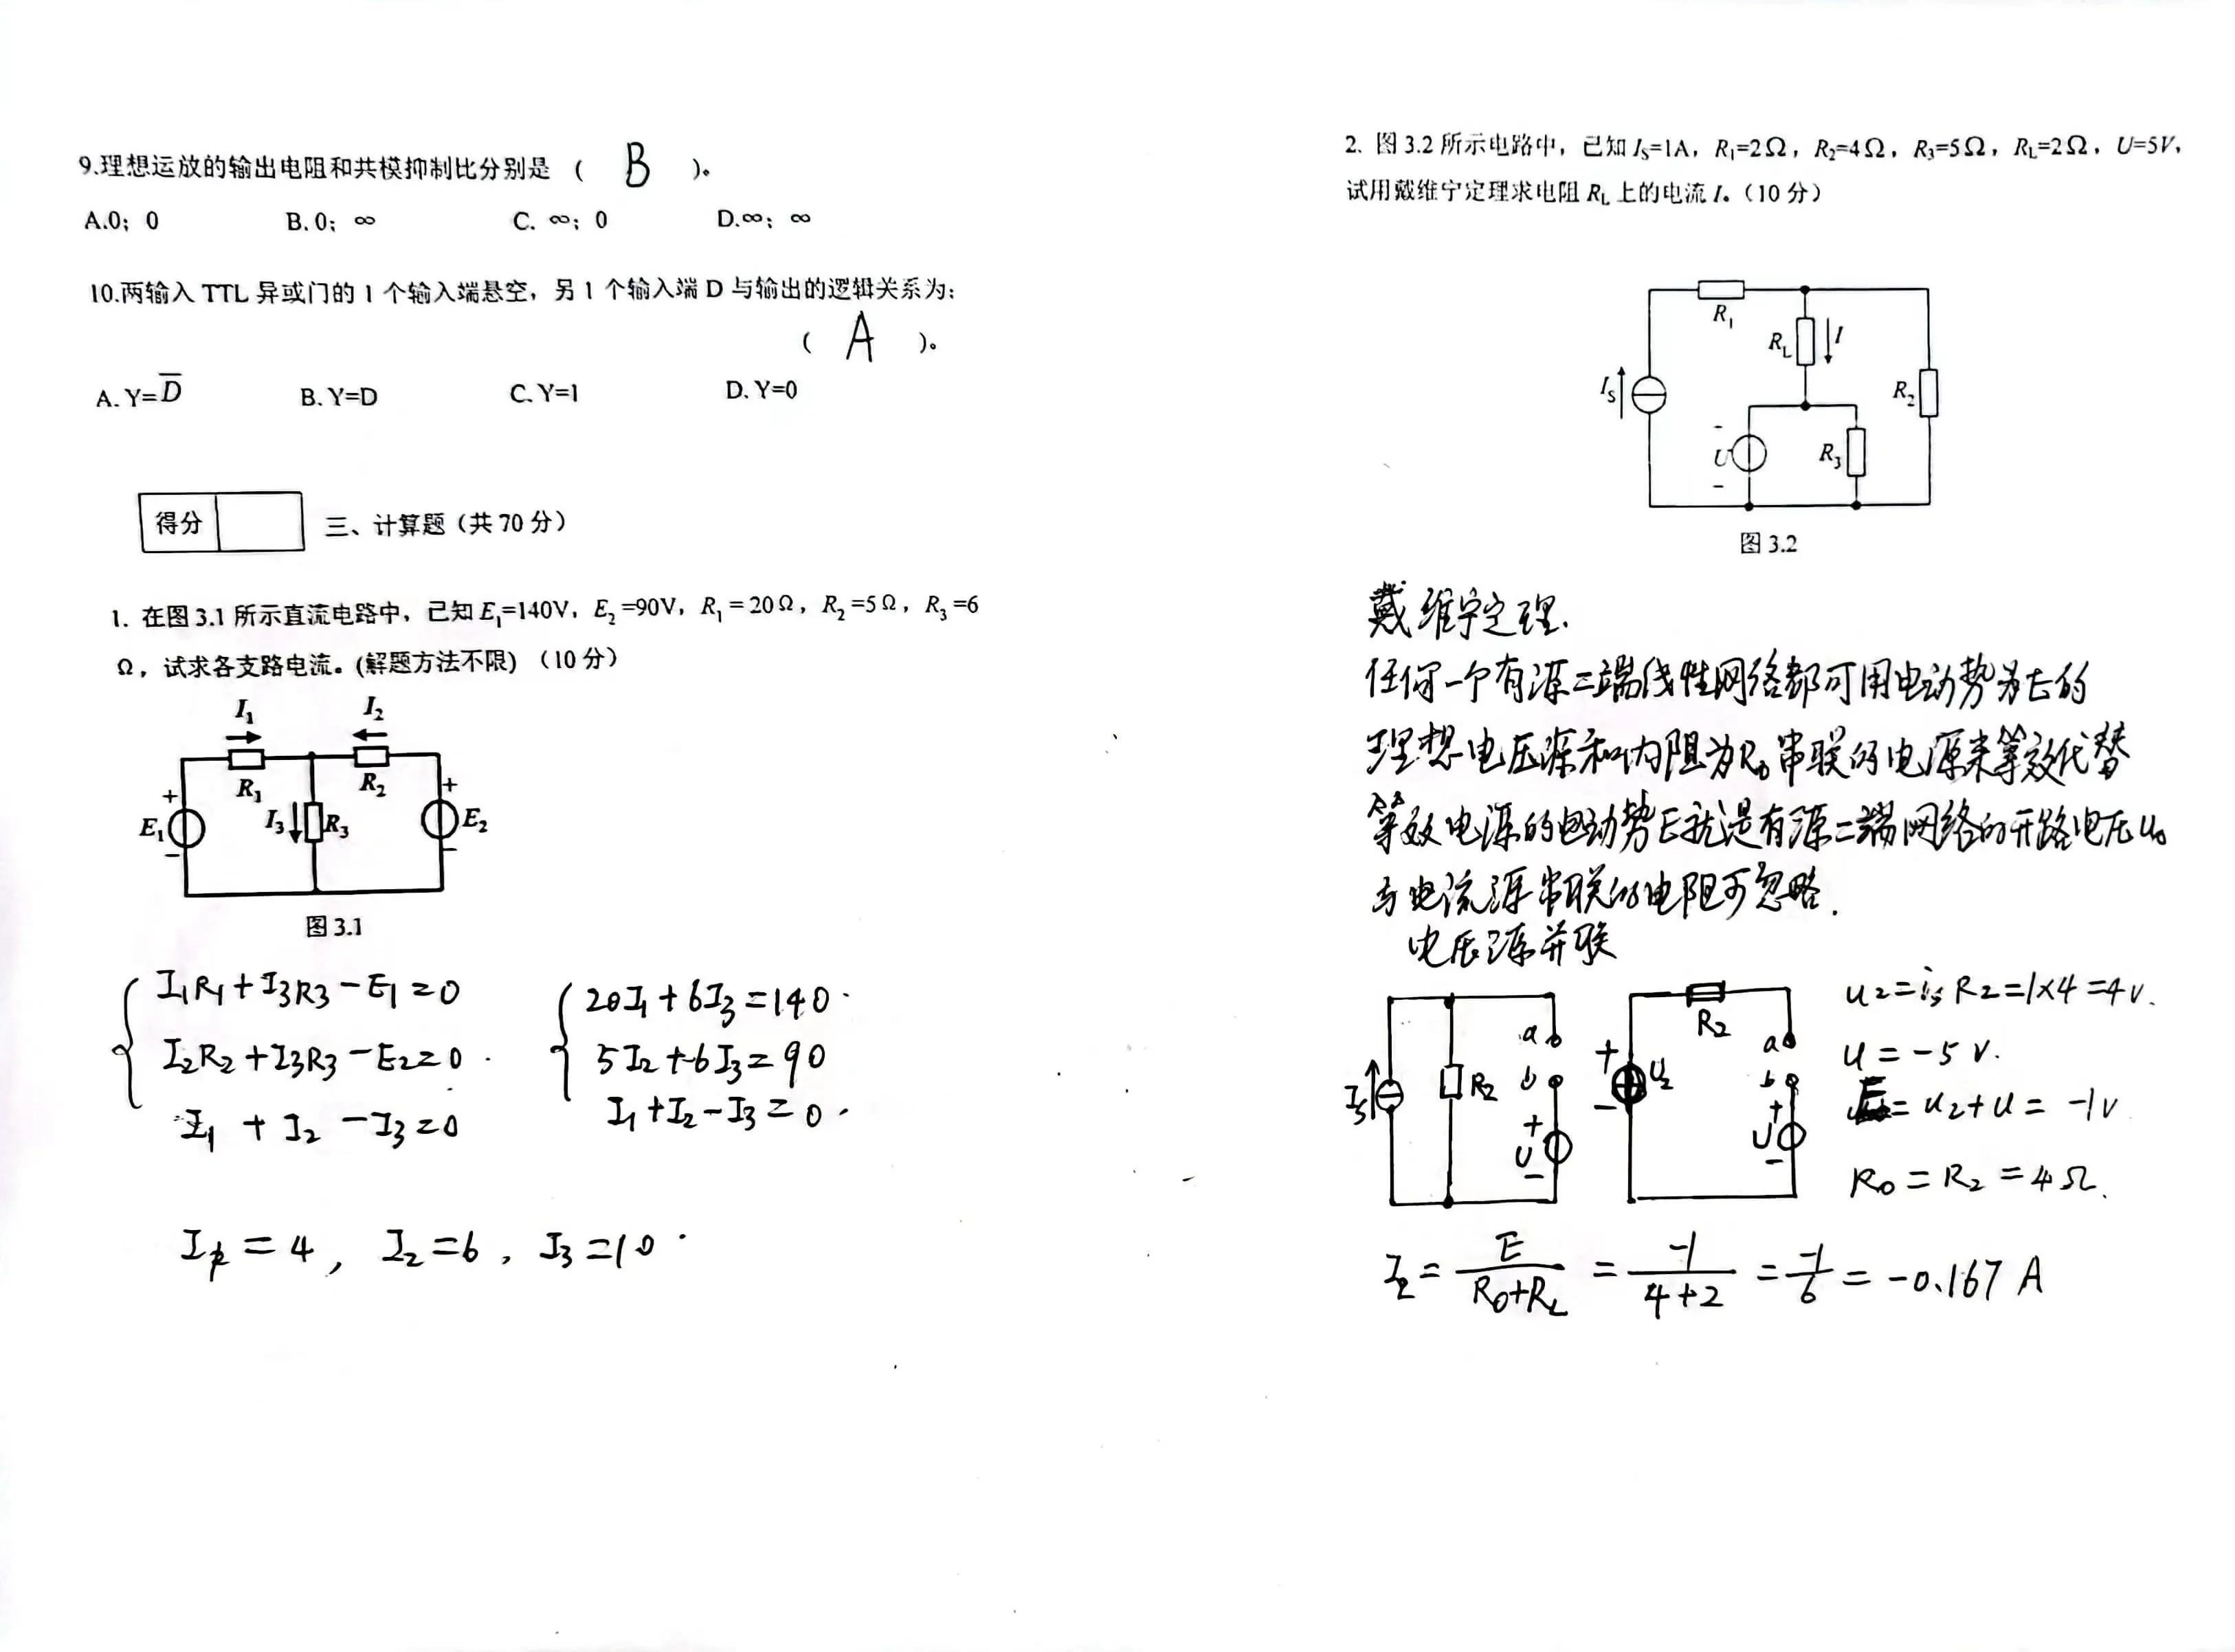 9.理想运放的输出电阻和共模抑制比分别是（ B ）。
A.0；0 B. 0；∞ C. ∞；0 D.∞；∞
10.两输入 TTL 异或门的 1 个输入端悬空，另 1 个输入端 D 与输出的逻辑关系为：
（ A ）。
A. Y=D̅ B. Y=D C. Y=1 D. Y=0
得分
三、计算题（共 70 分）
1. 在图 3.1 所示直流电路中，已知 E₁=140V，E₂=90V，R₁=20Ω，R₂=5Ω，R₃=6
Ω，试求各支路电流。(解题方法不限)（10 分）
I₁ I₂
R₁ R₂
+ +
E₁ I₃ R₃ E₂
- -
图 3.1
I₁R₁+I₃R₃-E₁=0
I₂R₂+I₃R₃-E₂=0
I₁+I₂-I₃=0
20I₁+6I₃=140
5I₂+6I₃=90
I₁+I₂-I₃=0
I₁=4，I₂=6，I₃=10
2. 图 3.2 所示电路中，已知 I_S=1A，R₁=2Ω，R₂=4Ω，R₃=5Ω，R_L=2Ω，U=5V，
试用戴维宁定理求电阻 R_L 上的电流 I。（10 分）
R₁
R_L I
I_S R₂
-
U R₃
-
图 3.2
戴维宁定理.
任何一个有源二端线性网络都可用电动势为E的
理想电压源和内阻为R₀串联的电源来等效代替
等效电源的电动势E就是有源二端网络的开路电压U₀
与电流源串联的电阻可忽略.
电压源并联
I_S R₂ a b + U -
+ U₂ - R₂ a b + U -
u₂=i_s R₂=1×4=4V.
u=-5V.
E=u₂+u=-1V
R₀=R₂=4Ω.
I_L=E/(R₀+R_L)=-1/(4+2)=-1/6=-0.167 A